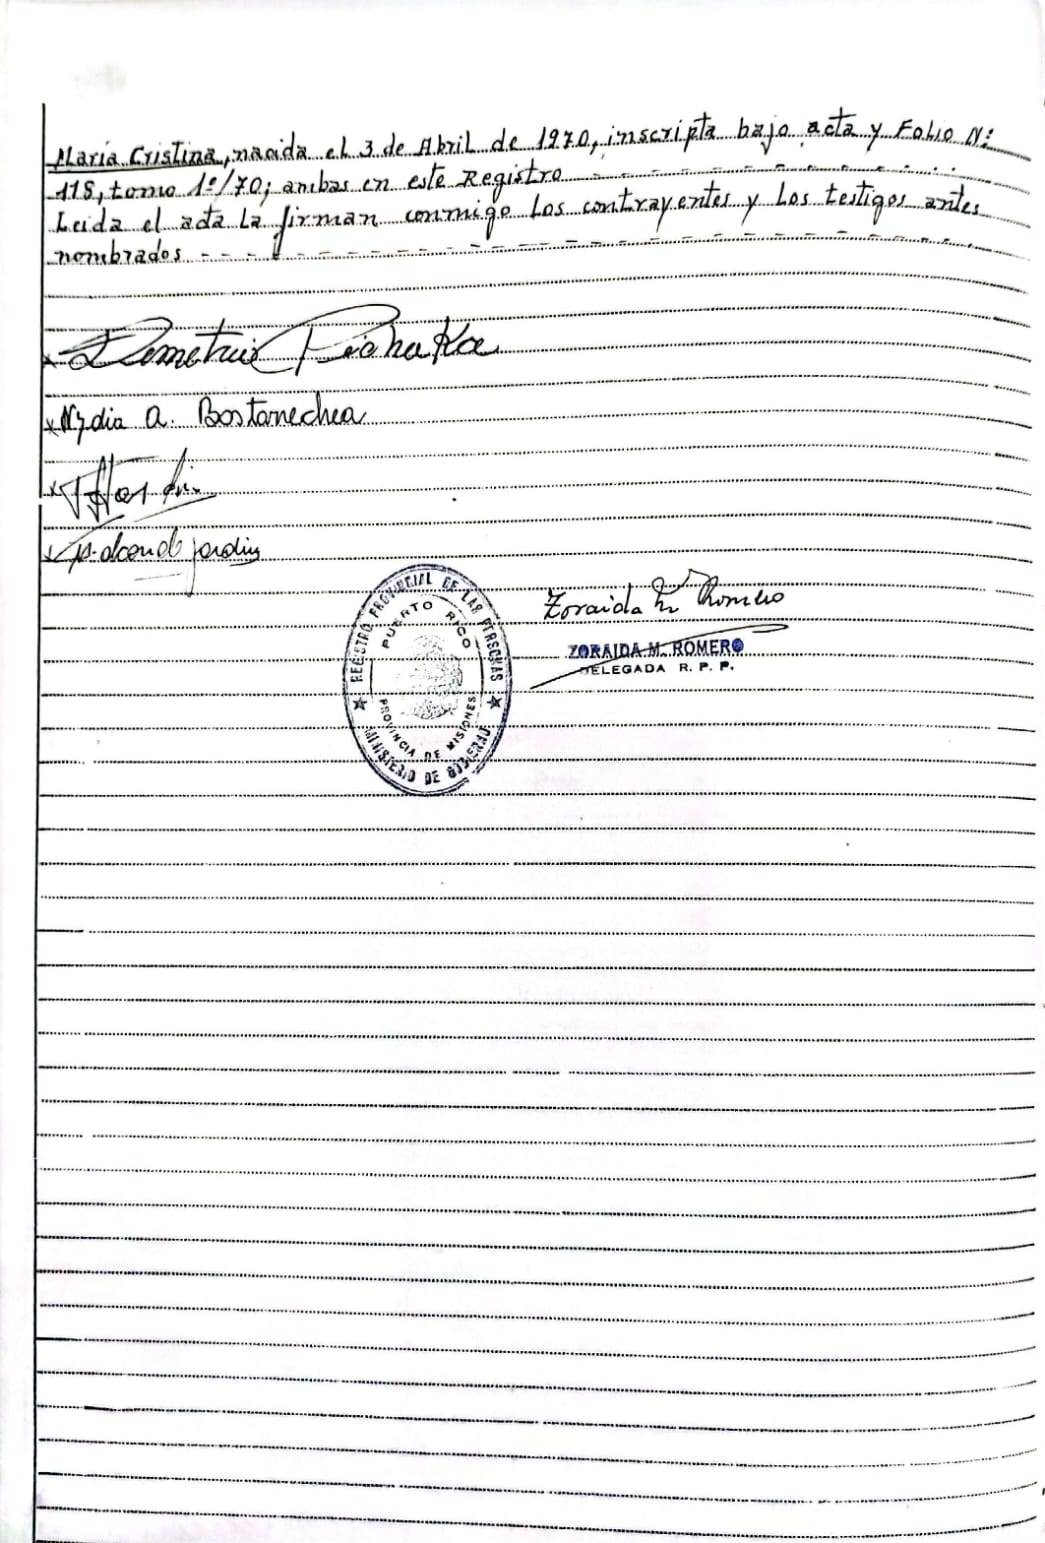 María Cristina, nacida el 3 de Abril de 1970, inscripta bajo acta y Folio N:
118, tomo 1º/70; ambas en este Registro - - - - - - - - - - - -
Leída el acta la firman conmigo los contrayentes y los testigos antes
nombrados - - - - - - - - - - - - - - - - - - - - - - - -
x Demetrio
x Nydia A. Bostanechea
x
x jardin
REGISTRO PROVINCIAL DE LAS PERSONAS
PUERTO RICO
PROVINCIA DE MISIONES
MINISTERIO DE GOBIERNO
Zoraida M Romero
ZORAIDA M. ROMERO
DELEGADA R. P. P.